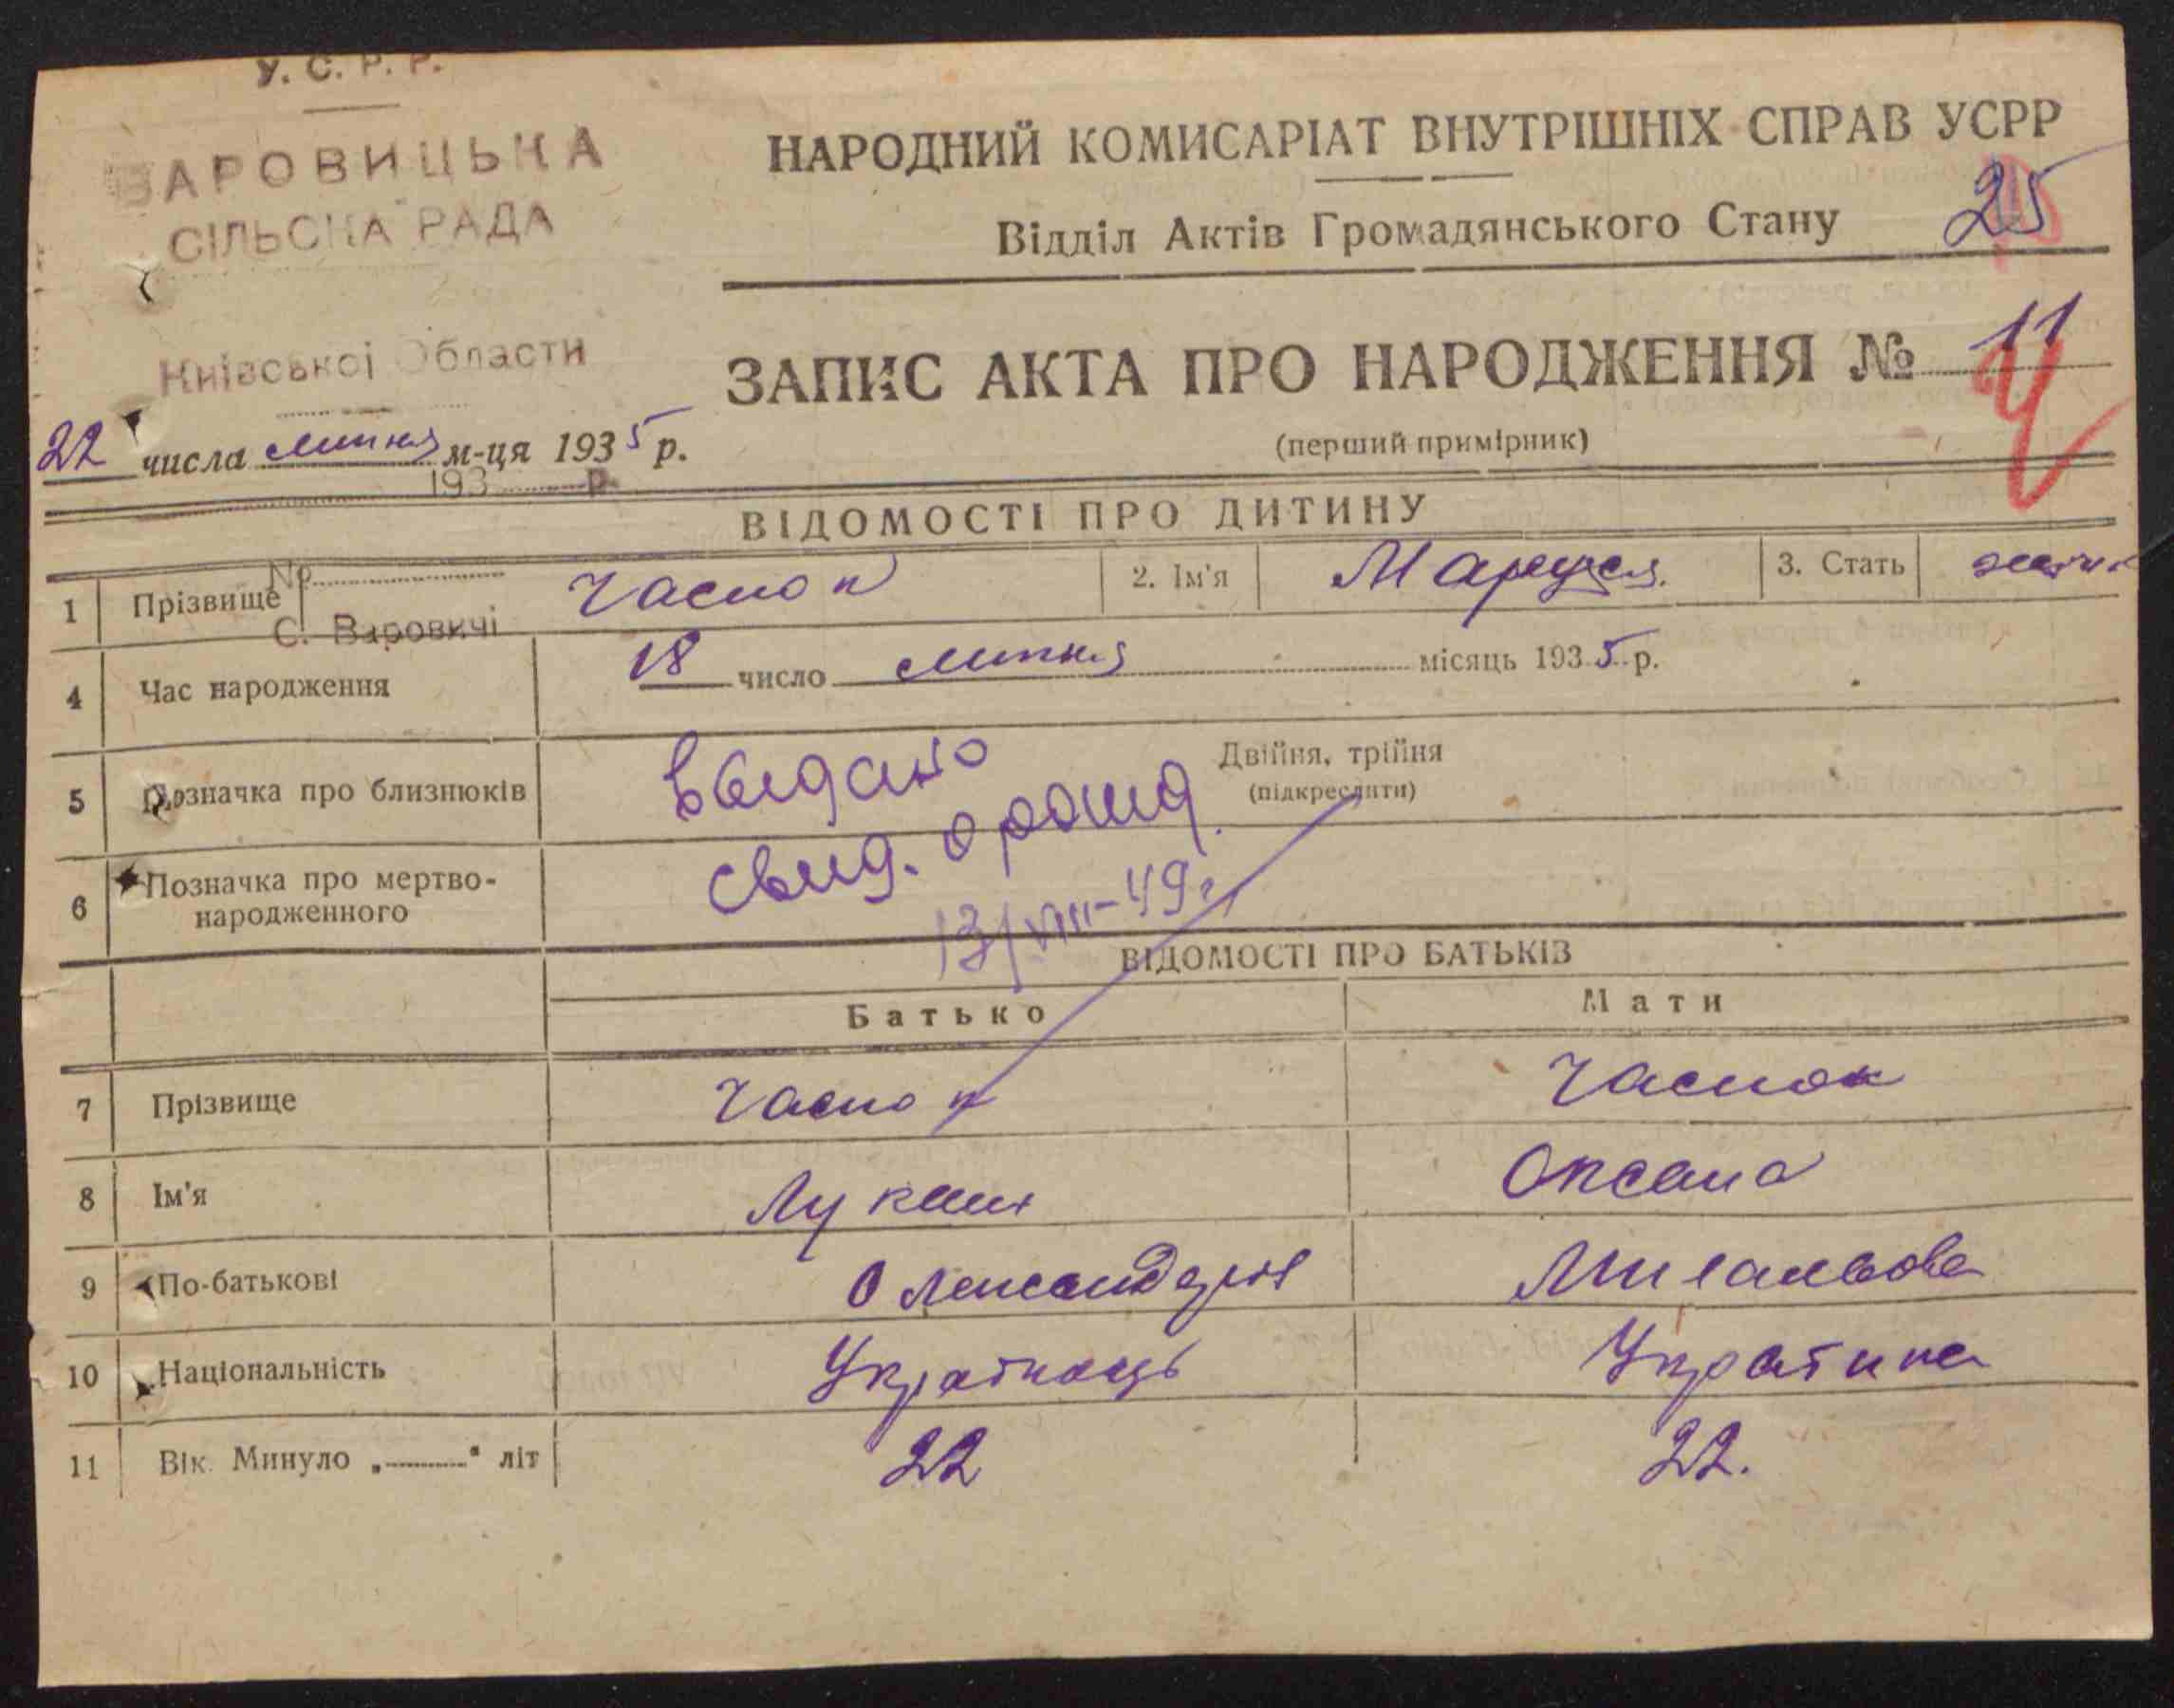 У. С. Р. Р.
ВАРОВИЦЬКА
СІЛЬСЬКА РАДА
Київської Области
22 числа липня м-ця 1935 р.
193 р.
№
С. Варовичі
НАРОДНИЙ КОМИСАРІАТ ВНУТРІШНІХ СПРАВ УСРР
Відділ Актів Громадянського Стану 25
ЗАПИС АКТА ПРО НАРОДЖЕННЯ № 11
(перший примірник)
ВІДОМОСТІ ПРО ДИТИНУ
1 Прізвище Часнок 2. Ім'я Маруся. 3. Стать
4 Час народження 18 число липня місяць 1935 р.
5 Позначка про близнюків Двійня, трійня
(підкреслити)
6 Позначка про мертво-
народженного
Выдано
свид. о рожд.
13/VIII-49 г.
ВІДОМОСТІ ПРО БАТЬКІВ
Батько Мати
7 Прізвище Часнок Часнок
8 Ім'я Лукаш Оксана
9 По-батькові
10 Національність Українець Українка
11 Вік. Минуло „ " літ 22 22.